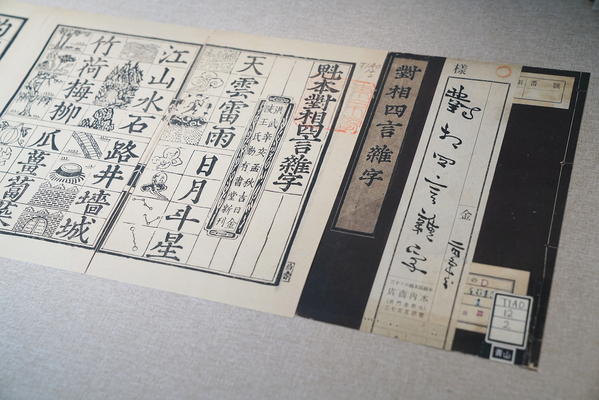 樣
對相四言雜字
金
TIAO
12
2
青山
對相四言雜字
魁本對相四言雜字
洪武辛亥孟秋吉日金
陵王氏勤有書堂新刊
天雲雷雨
日月斗星
江山水石
路井墻城
竹荷梅柳
瓜薑